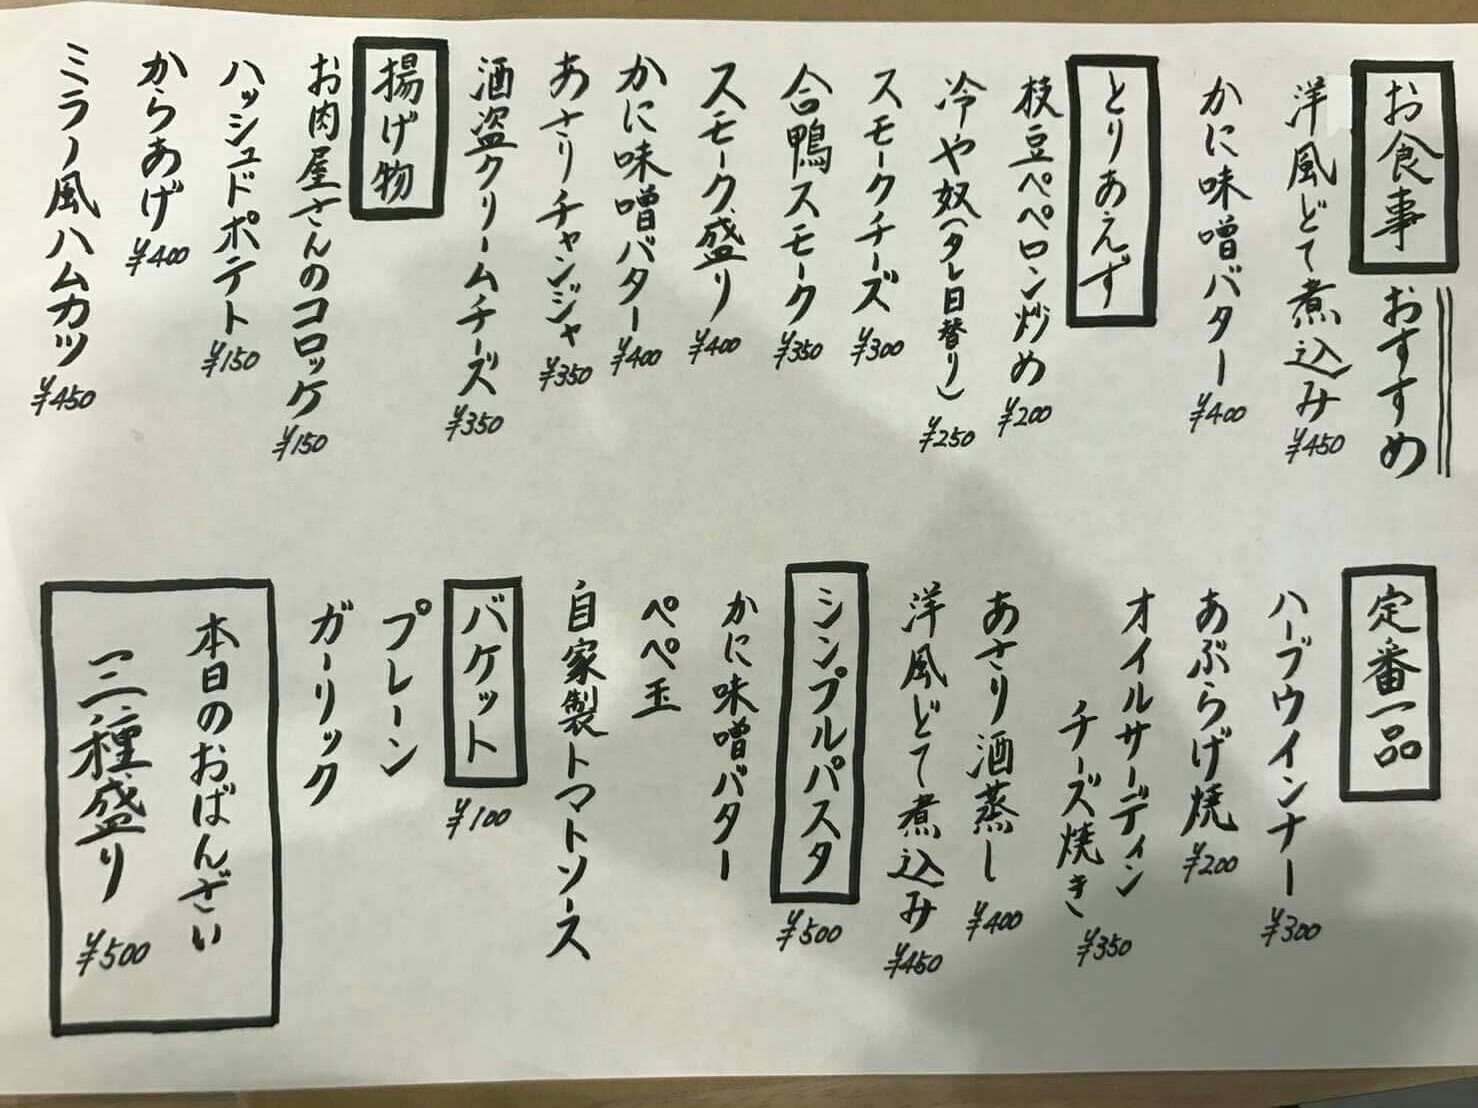 お食事
おすすめ
洋風どて煮込み ¥450
かに味噌バター ¥400
とりあえず
枝豆ペペロン炒め ¥200
冷や奴(タレ日替り) ¥250
スモークチーズ ¥300
合鴨スモーク ¥350
スモーク盛り ¥400
かに味噌バター ¥400
あさりチャンジャ ¥350
酒盗クリームチーズ ¥350
揚げ物
お肉屋さんのコロッケ ¥150
ハッシュドポテト ¥150
からあげ ¥400
ミラノ風ハムカツ ¥450
定番一品
ハーブウインナー ¥300
あぶらげ焼 ¥200
オイルサーディン
チーズ焼き ¥350
あさり酒蒸し ¥400
洋風どて煮込み ¥450
シンプルパスタ ¥500
かに味噌バター
ペペ玉
自家製トマトソース
バケット ¥100
プレーン
ガーリック
本日のおばんざい
三種盛り ¥500